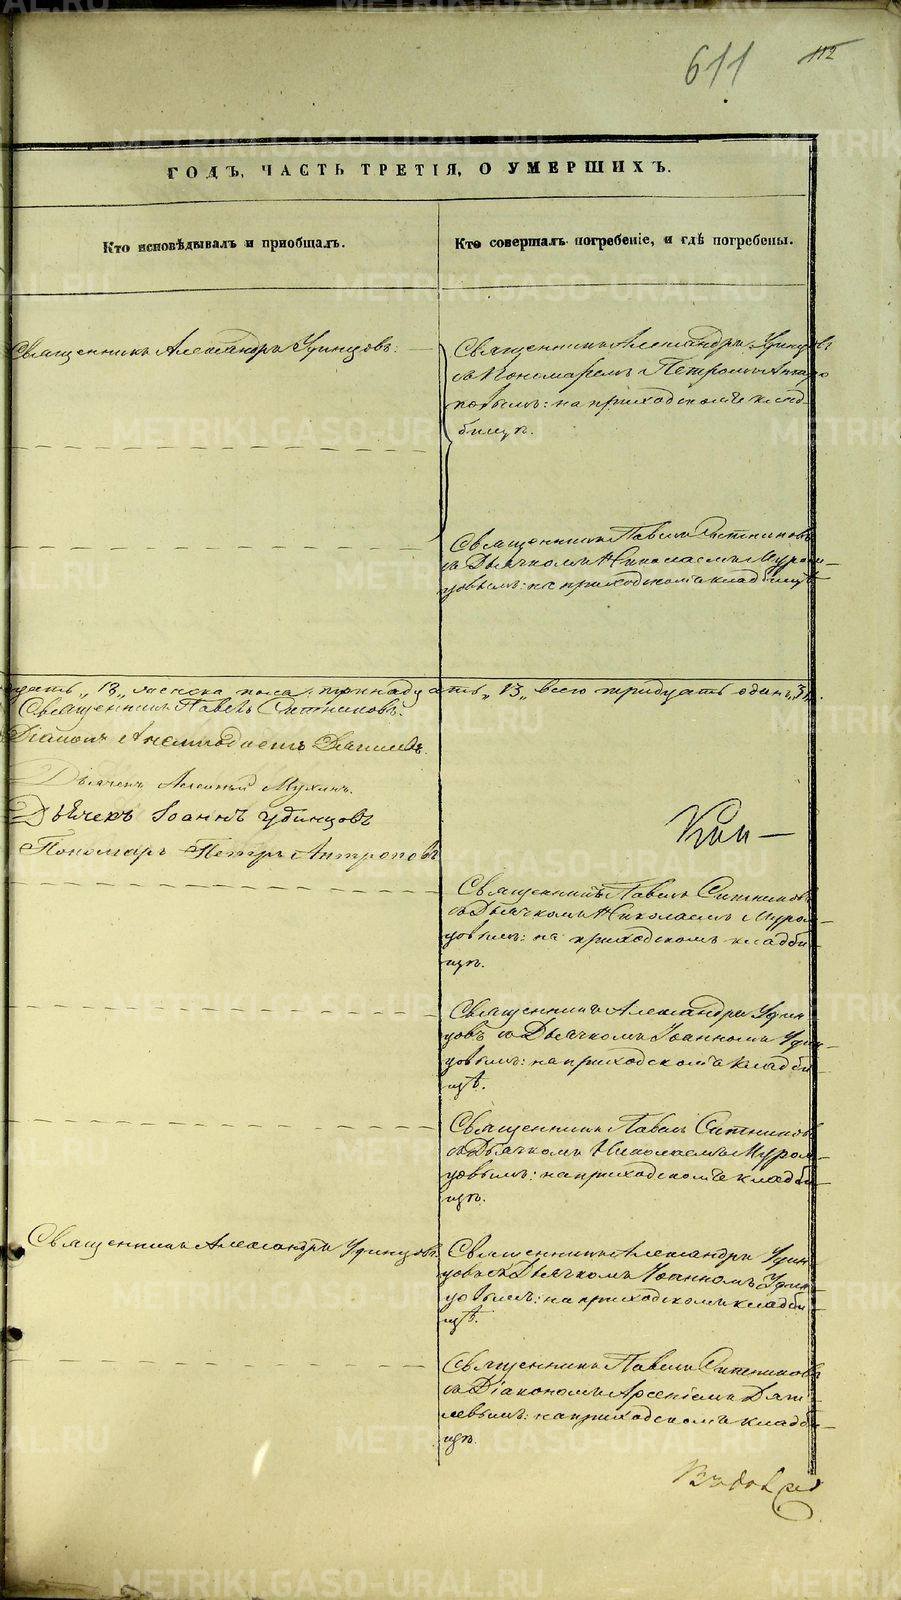 611 112
ГОДЪ, ЧАСТЬ ТРЕТІЯ, О УМЕРШИХЪ.
Кто исповѣдывалъ и приобщалъ.
Кто совершалъ погребеніе, и гдѣ погребены.
Священникъ Александръ Удинцовъ.
Священникъ Александръ Удинцовъ
съ Пономаремъ Петромъ Антро
повымъ: на приходскомъ клад-
бищѣ.
Священникъ Павелъ Ситниковъ
съ Дьячкомъ Николаемъ Муром-
цовымъ: на приходскомъ кладбищѣ
цать „13„ женска пола тринадцать „13„ всего тридцать одинъ
Священникъ Павелъ Ситниковъ.
Діаконъ
Дьячекъ Мухинъ.
Дьячекъ Іоаннъ Удинцовъ
Пономарь Петръ Антроповъ
Священникъ Павелъ Ситниковъ
съ Дьячкомъ Николаемъ Муром-
цовымъ: на приходскомъ кладби-
щѣ.
Священникъ Александръ Удин
цовъ съ Дьячкомъ Іоанномъ Удин-
цовымъ: на приходскомъ кладби
щѣ.
Священникъ Павелъ Ситниковъ
съ Дьячкомъ Николаемъ Муром-
цовымъ: на приходскомъ кладби-
щѣ.
Священникъ Александръ Удинцовъ.
Священникъ Александръ Удин
цовъ съ Дьячкомъ Іоанномъ Удин-
цовымъ: на приходскомъ кладби
щѣ.
Священникъ Павелъ Ситниковъ
съ Діакономъ Арсеніемъ Дяги-
левымъ: на приходскомъ кладби-
щѣ.
METRIKI.GASO-URAL.RU